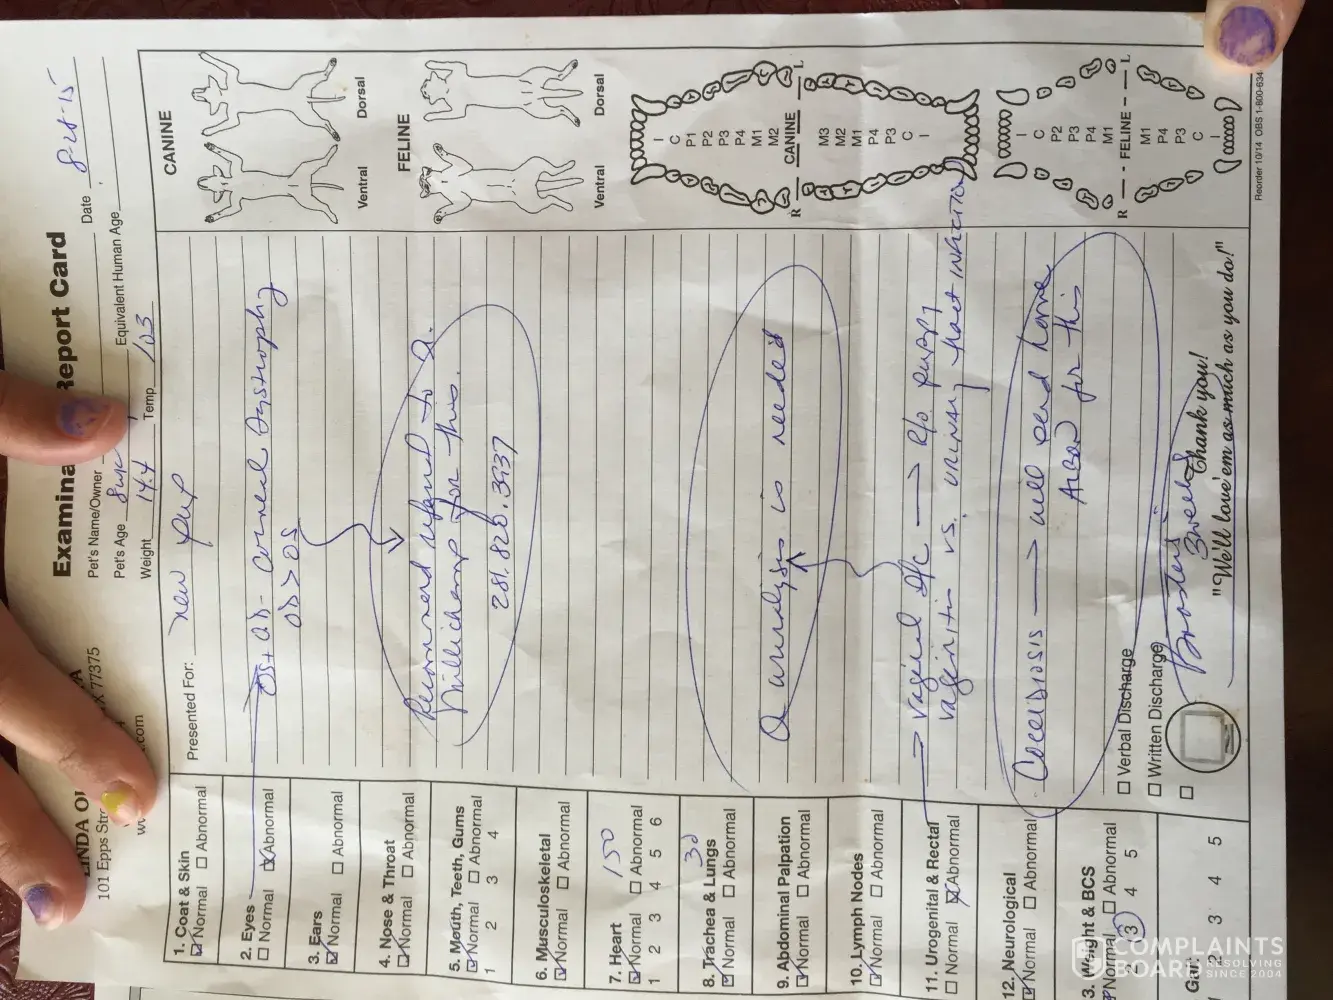 Examina Report Card
101 Epps Stre
X 77375
.com
Pet's Name/Owner
Date 8-28-15
Pet's Age 8wk
Equivalent Human Age
Weight 14.4 Temp 103
Presented For: new pup
1. Coat & Skin
Normal Abnormal
2. Eyes
Normal Abnormal
OS + OD - corneal dystrophy
OD > OS
3. Ears
Normal Abnormal
4. Nose & Throat
Normal Abnormal
Recommend referral to Dr.
Millichamp for this.
281.820.3937
5. Mouth, Teeth, Gums
Normal Abnormal
1 2 3 4
6. Musculoskeletal
Normal Abnormal
7. Heart 150
Normal Abnormal
1 2 3 4 5 6
8. Trachea & Lungs 30
Normal Abnormal
9. Abdominal Palpation
Normal Abnormal
urinalysis is needed
10. Lymph Nodes
Normal Abnormal
11. Urogenital & Rectal
Normal Abnormal
→ vaginal d/c → R/o puppy
vaginitis vs. urinary tract infection
12. Neurological
Normal Abnormal
Coccidiosis → will send home
Albon for this
3. Weight & BCS
Normal Abnormal
2 3 4 5
Verbal Discharge
Written Discharge
Boosters
3 weeks
Thank you!
"We'll love 'em as much as you do!"
2 3 4 5
CANINE
Ventral Dorsal
FELINE
Ventral Dorsal
I
C
P1
P2
P3
P4
M1
M2
R CANINE L
M3
M2
M1
P4
P3
C
I
I
C
P2
P3
P4
M1
R - FELINE - L
M1
P4
P3
C
I
Reorder 10/14 OBS 1-800-634
COMPLAINTS
BOARD
RESOLVING
SINCE 2004